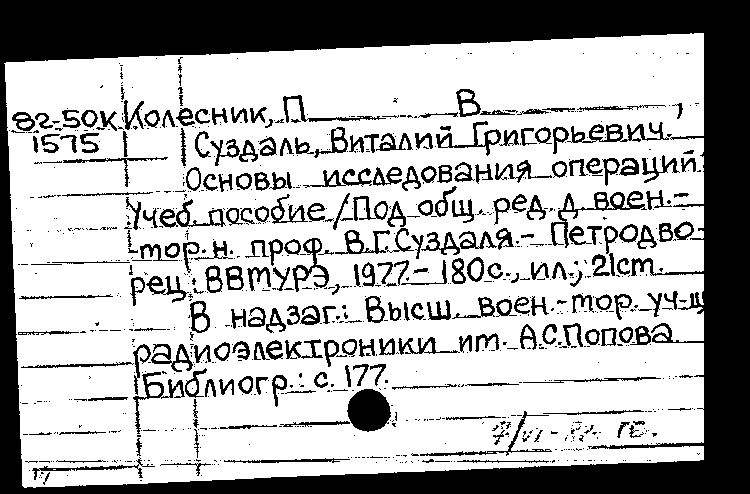 82-50К Колесник, П В ,
1575 Суздаль, Виталий Григорьевич.
Основы исследования операций:
Учеб. пособие / Под общ. ред. д. воен.-
-мор. н. проф. В.Г. Суздаля. - Петродво-
рец: ВВМУРЭ, 1977. - 180 с., ил.; 21 см.
В надзаг.: Высш. воен.-мор. уч-щ
радиоэлектроники им. А.С. Попова
Библиогр.: с. 177.